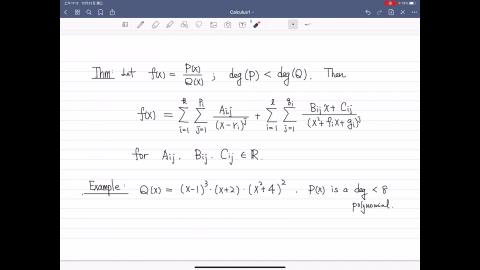 Calculus1
Thm: Let f(x) = P(x)/Q(x) ; deg(P) < deg(Q). Then
f(x) = Σ_{i=1}^{k} Σ_{j=1}^{p_i} A_ij/(x-r_i)^j + Σ_{i=1}^{l} Σ_{j=1}^{q_i} (B_ij x + C_ij)/(x²+f_i x+g_i)^j
for A_ij, B_ij, C_ij ∈ ℝ.
Example: Q(x) = (x-1)³·(x+2)·(x²+4)². P(x) is a deg < 8
polynomial.